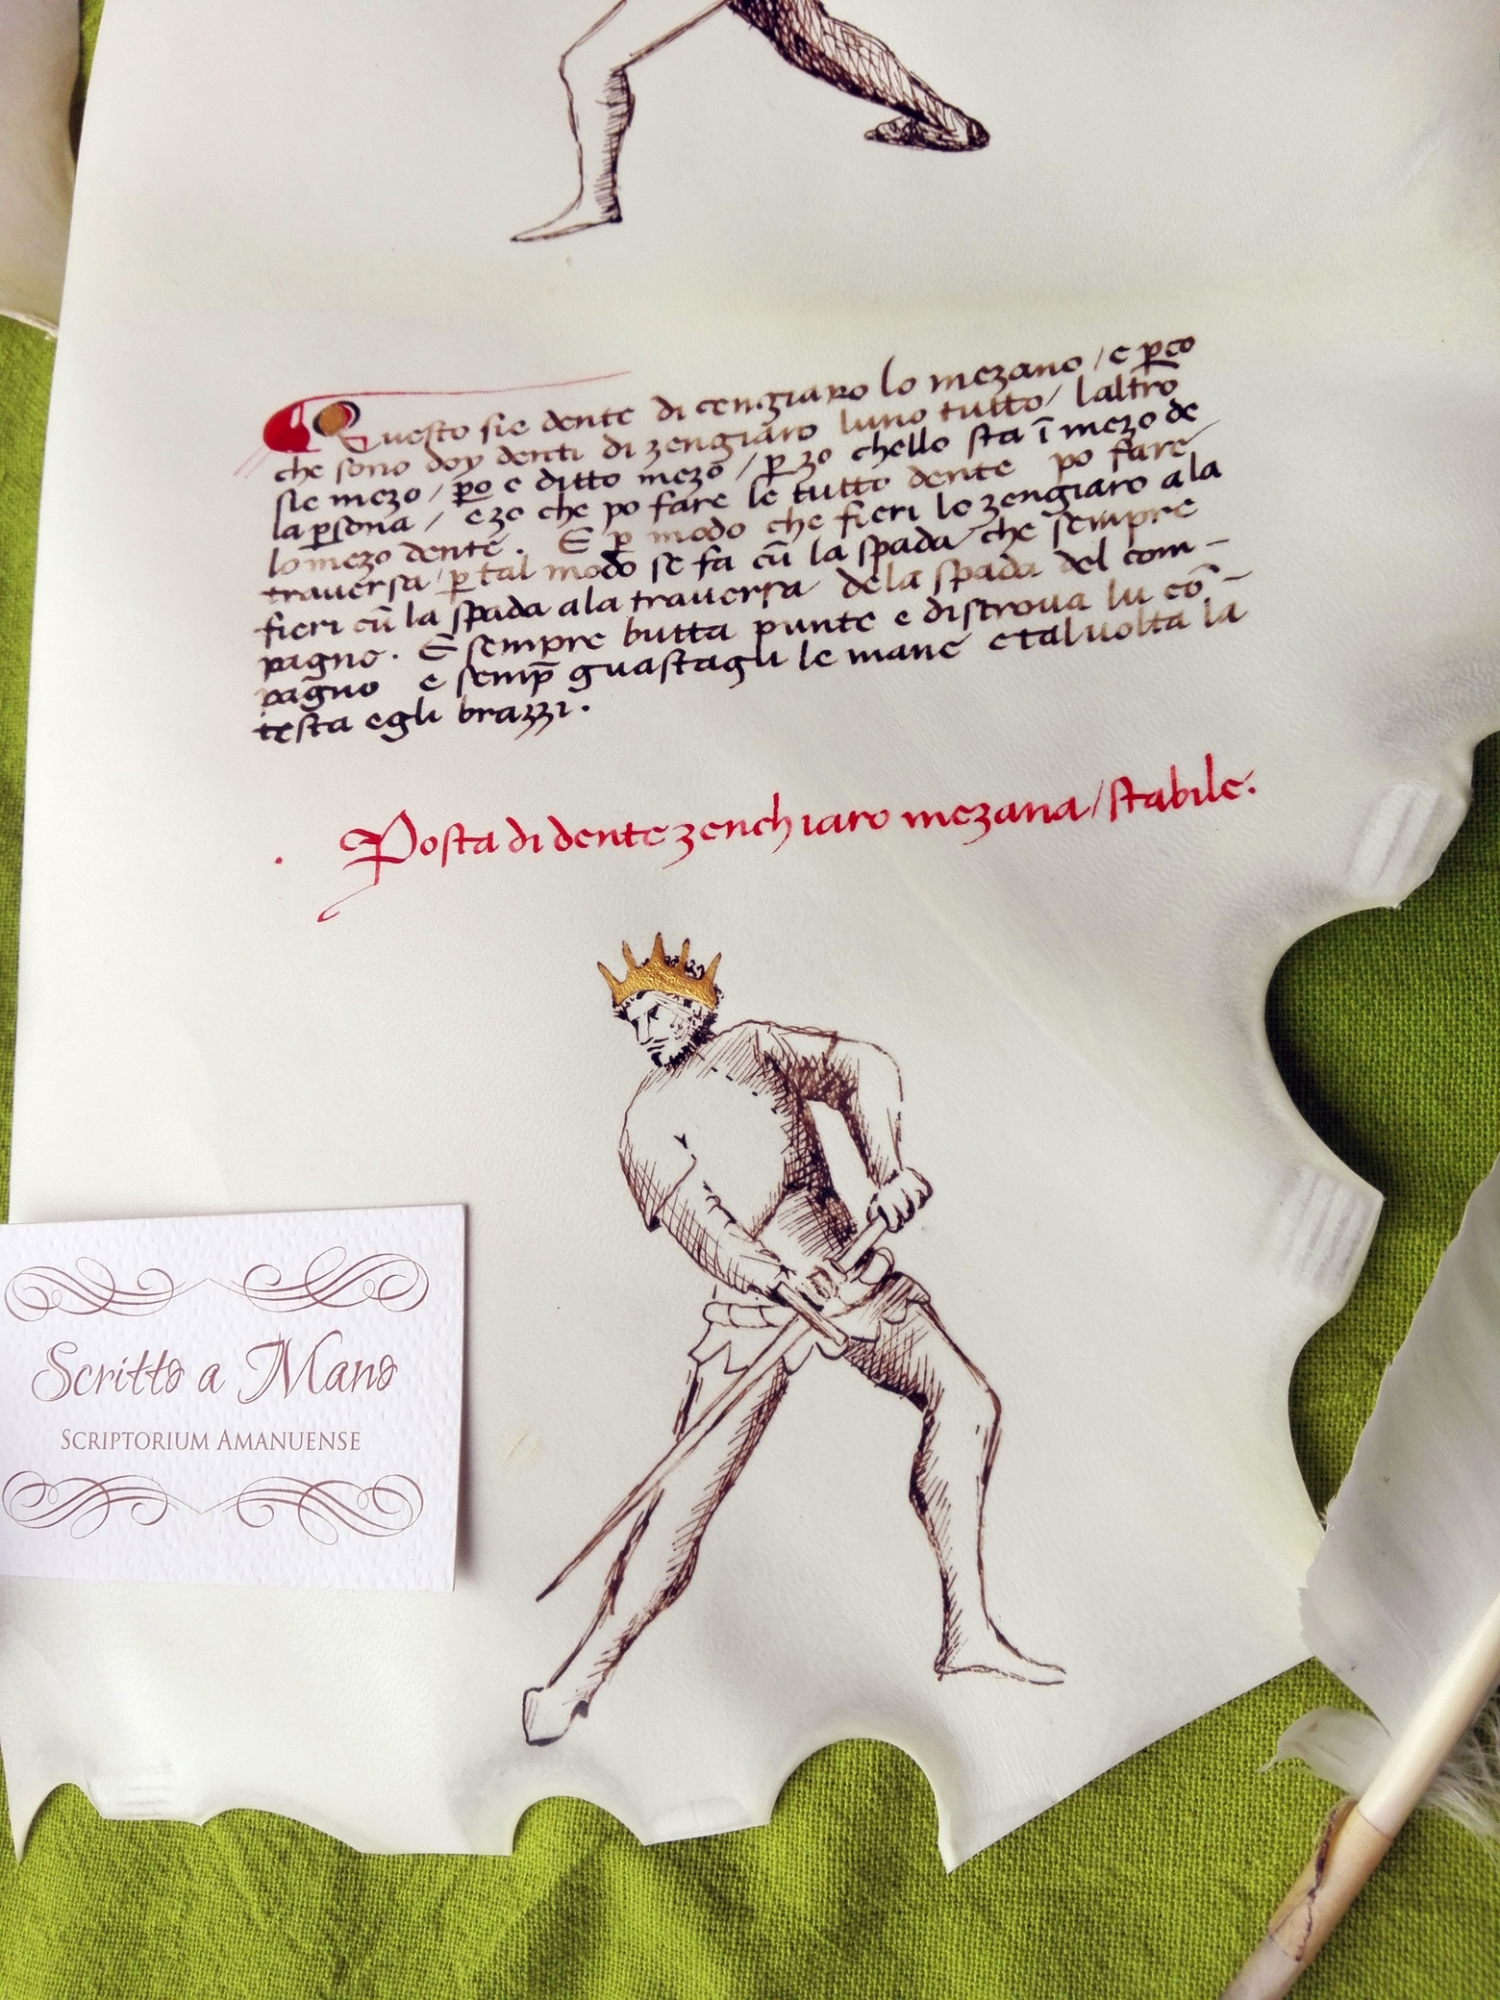 Questo sie dente di cengiaro lo mezano / e p̱co
che sono doy denti di zengiaro luno tutto / laltro
sie mezo / p̱o e ditto mezo / p̱ zo chello sta ī mezo de
la p̱sona / ezo che po fare le tutto dente po fare
lo mezo dente. E p̱ modo che fieri lo zengiaro a la
trauersa / p̱ tal modo se fa cū la spada che sempre
fieri cū la spada ala trauersa dela spada del com-
pagno. E sempre butta punte e distroua lu co-
pagno e semp̄ guastagli le mane e tal uolta la
testa egli brazzi.
. Posta di dente zenchiaro mezana / stabile.
Scritto a Mano
SCRIPTORIUM AMANUENSE